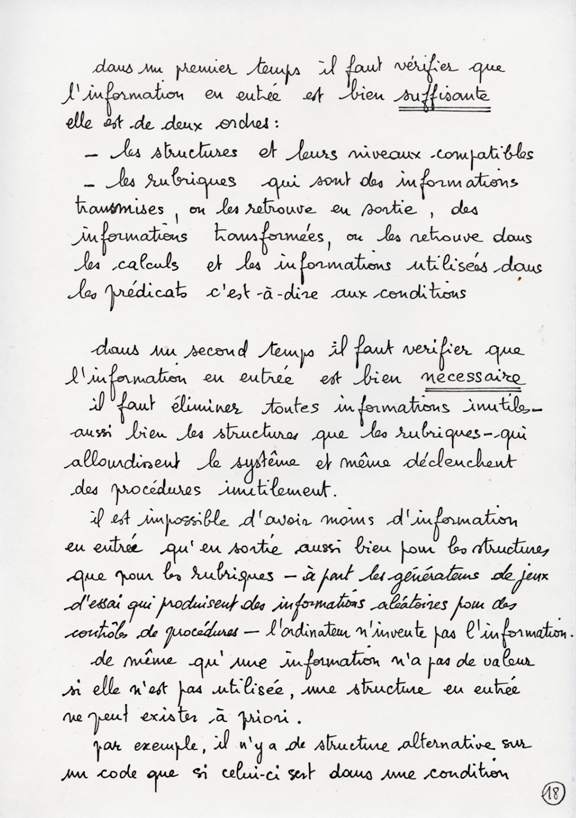 dans un premier temps il faut vérifier que
l'information en entrée est bien suffisante
elle est de deux ordres :
– les structures et leurs niveaux compatibles
– les rubriques qui sont des informations
transmises, on les retrouve en sortie, des
informations transformées, on les retrouve dans
les calculs et les informations utilisées dans
les prédicats c'est-à-dire aux conditions
dans un second temps il faut verifier que
l'information en entrée est bien nécessaire
il faut éliminer toutes informations inutiles–
aussi bien les structures que les rubriques–qui
allourdissent le système et même déclenchent
des procédures inutilement.
il est impossible d'avoir moins d'information
en entrée qu'en sortie aussi bien pour les structures
que pour les rubriques – à part les générateurs de jeux
d'essai qui produisent des informations aléatoires pour des
contrôles de procédures – l'ordinateur n'invente pas l'information.
de même qu'une information n'a pas de valeur
si elle n'est pas utilisée, une structure en entrée
ne peut exister à priori.
par exemple, il n'y a de structure alternative sur
un code que si celui-ci sert dans une condition
18